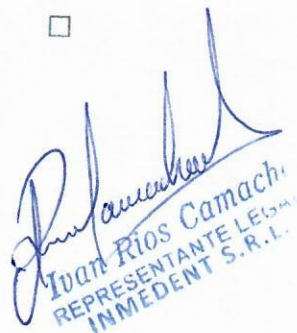 Ivan Rios Camach
REPRESENTANTE LEGA
INMEDENT S.R.L.